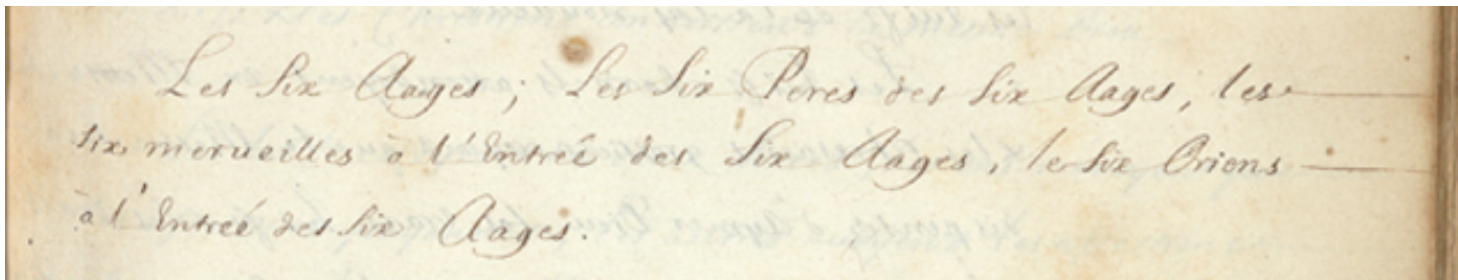 Les Six Aages; Les Six Peres des Six Aages, les
Six merueilles à l'Entreé des Six Aages, les Six Orions
à l'Entreé des Six Aages.